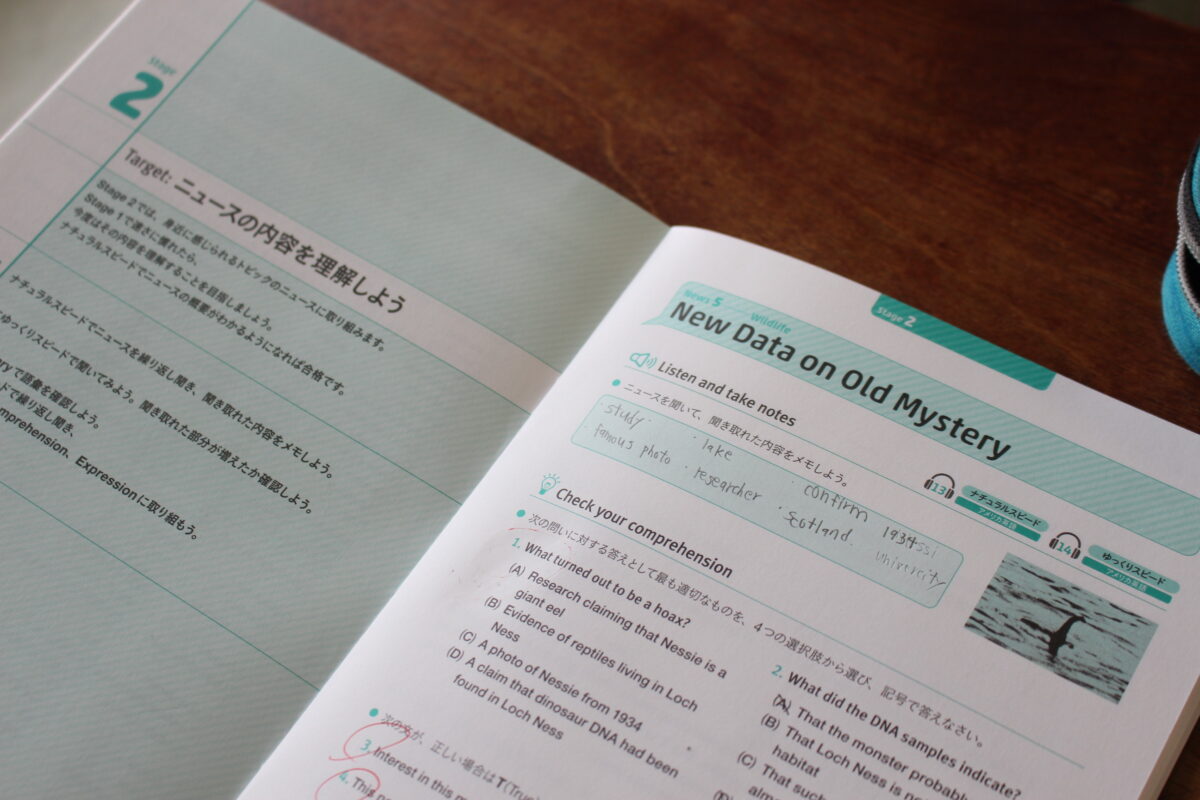 Stage
2
Target: ニュースの内容を理解しよう
Stage 2では、身近に感じられるトピックのニュースに取り組みます。
Stage 1で速さに慣れたら、
今度はその内容を理解することを目指しましょう。
ナチュラルスピードでニュースの概要がわかるようになれば合格です。
ナチュラルスピードでニュースを繰り返し聞き、聞き取れた内容をメモしよう。
ゆっくりスピードで聞いてみよう。聞き取れた部分が増えたか確認しよう。
で語彙を確認しよう。
で繰り返し聞き、
mprehension、Expressionに取り組もう。
Stage 2
News 5
Wildlife
New Data on Old Mystery
Listen and take notes
ニュースを聞いて、聞き取れた内容をメモしよう。
・study
・lake
・confirm
1934
・famous photo
・researcher
・Scotland
University
13 ナチュラルスピード
アメリカ英語
14 ゆっくりスピード
アメリカ英語
Check your comprehension
次の問いに対する答えとして最も適切なものを、4つの選択肢から選び、記号で答えなさい。
1. What turned out to be a hoax?
(A) Research claiming that Nessie is a
giant eel
(B) Evidence of reptiles living in Loch
Ness
(C) A photo of Nessie from 1934
(D) A claim that dinosaur DNA had been
found in Loch Ness
2. What did the DNA samples indicate?
(A) That the monster probably
(B) That Loch Ness is
habitat
(C) That such
次の文が、正しい場合はT(True)
3. Interest in this
4. This